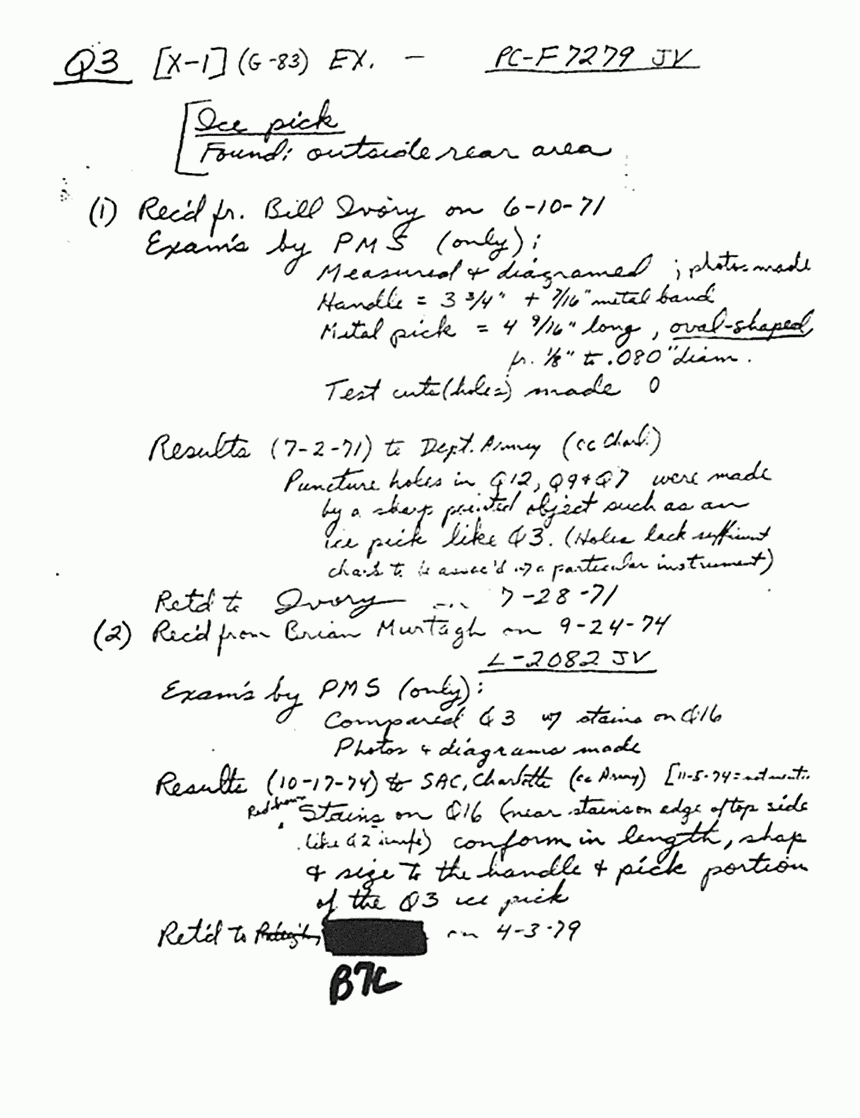 Q3 [X-1] (G-83) EX. — PC-F7279 JV
[Ice pick
Found: outside rear area
(1) Rec'd fr. Bill Ivory on 6-10-71
Exam's by PMS (only):
Measured & diagramed ; photos made
Handle = 3 3/4" + 7/16" metal band
Metal pick = 4 9/16" long, oval-shaped,
fr. 1/8" to .080" diam.
Test cuts (holes) made
Results (7-2-71) to Dept. Army (cc Charl.)
Puncture holes in Q12, Q9 & Q7 were made
by a sharp pointed object such as an
ice pick like Q3. (Holes lack sufficient
char's to be assoc'd w/ a particular instrument)
Retd to Ivory on 7-28-71
(2) Rec'd from Brian Murtagh on 9-24-74
L-2082 JV
Exam's by PMS (only):
Compared Q3 w/ stains on Q16
Photos & diagrams made
Results (10-17-74) to SAC, Charlotte (cc Army) [11-5-74 =
Red brown Stains on Q16 (near stains on edge of top side
like Q2 knife) conform in length, shap
& size to the handle & pick portion
of the Q3 ice pick
Ret'd to Raleigh, on 4-3-79
B7C